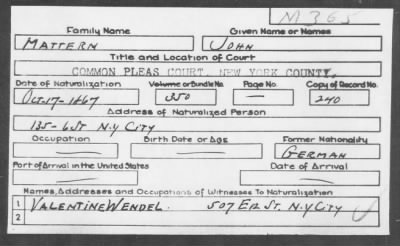 M365
Family Name Given Name or Names
MATTERN JOHN
Title and Location of Court
COMMON PLEAS COURT, NEW YORK COUNTY.
Date of Naturalization Volume or Bundle No. Page No. Copy of Record No.
OCT-17-1867 350 — 240
Address of Naturalized Person
135-6 ST N.Y CITY
Occupation Birth Date or Age Former Nationality
— — GERMAN
Port of Arrival in the United States Date of Arrival
— —
Names, Addresses and Occupations of Witnesses To Naturalization
1 VALENTINE WENDEL. 507 ST. N.Y CITY
2